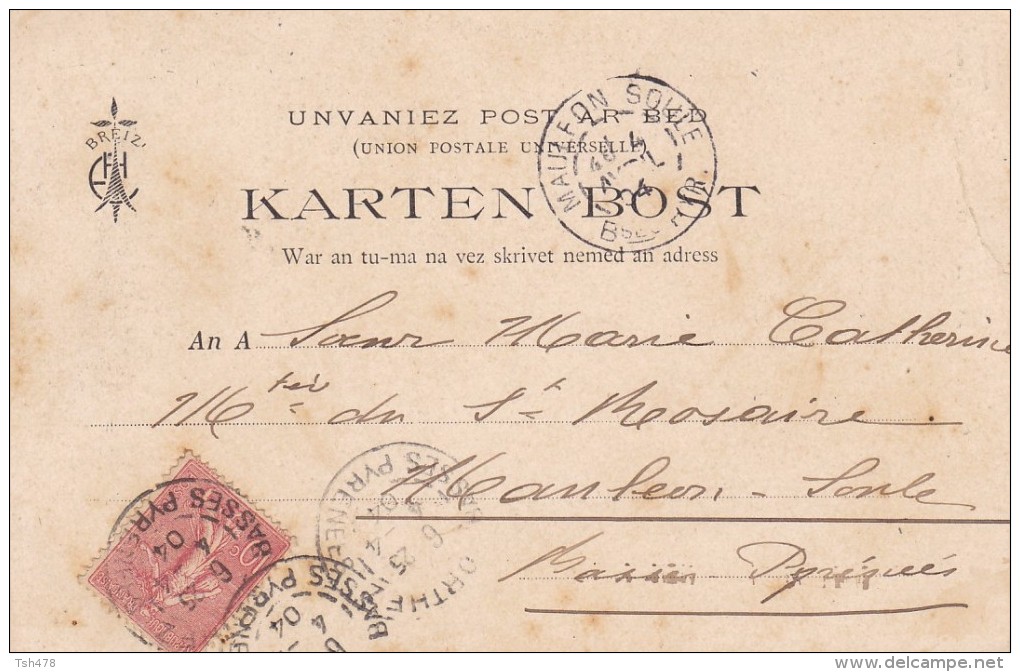 BREIZ
UNVANIEZ POST AR BED
(UNION POSTALE UNIVERSELLE)
KARTEN BOST
War an tu-ma na vez skrivet nemed an adress
MAULEON SOULE
04
An A Sœur Marie Catherine
M tère du St Rosaire
Mauleon - Soule
Basses Pyrénées
BASSES PYRENEES
ORTHEZ
6 4 04
BASSES PYREN
6 4 04
BASSES PYREN
4 04
Tsh478
www.delcampe.net